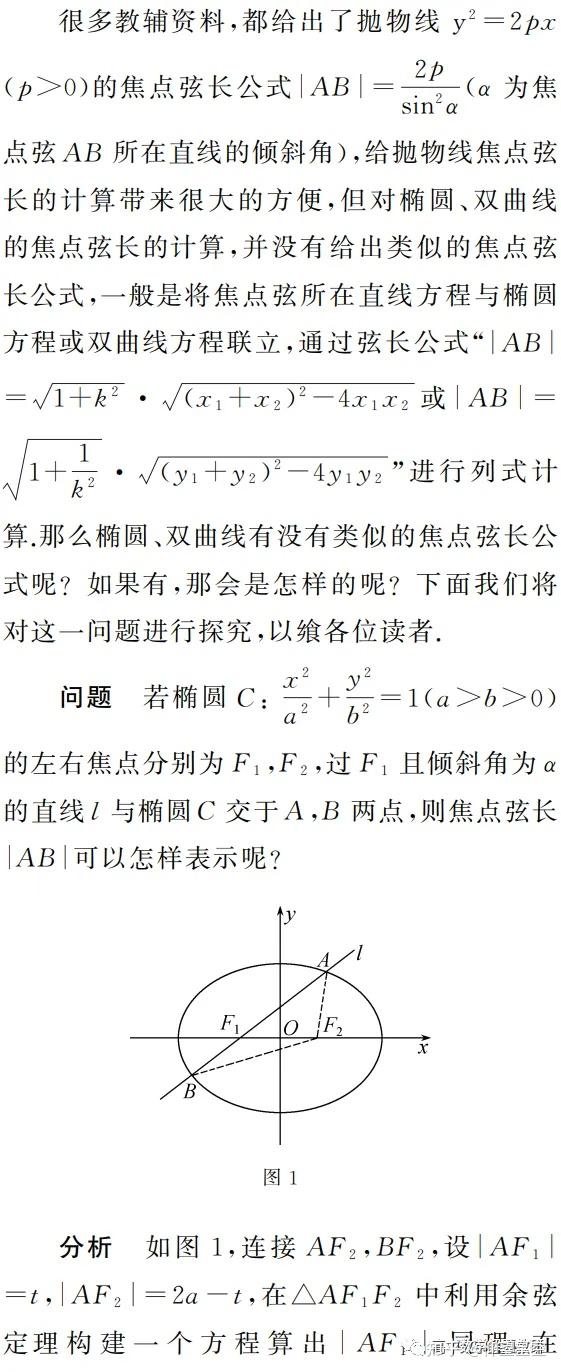 很多教辅资料,都给出了抛物线 y²=2px
(p>0)的焦点弦长公式|AB|=2p/sin²α(α 为焦
点弦AB 所在直线的倾斜角),给抛物线焦点弦
长的计算带来很大的方便,但对椭圆、双曲线
的焦点弦长的计算,并没有给出类似的焦点弦
长公式,一般是将焦点弦所在直线方程与椭圆
方程或双曲线方程联立,通过弦长公式“|AB|
=√(1+k²)·√((x₁+x₂)²-4x₁x₂)或|AB|=
√(1+1/k²)·√((y₁+y₂)²-4y₁y₂)”进行列式计
算.那么椭圆、双曲线有没有类似的焦点弦长公
式呢?如果有,那会是怎样的呢?下面我们将
对这一问题进行探究,以飨各位读者.
问题 若椭圆C:x²/a²+y²/b²=1(a>b>0)
的左右焦点分别为F₁,F₂,过F₁且倾斜角为α
的直线l与椭圆C交于A,B两点,则焦点弦长
|AB|可以怎样表示呢?
y
A
l
F₁
O
F₂
x
B
图1
分析 如图1,连接AF₂,BF₂,设|AF₁|
=t,|AF₂|=2a-t,在△AF₁F₂中利用余弦
定理构建一个方程算出|AF₁|